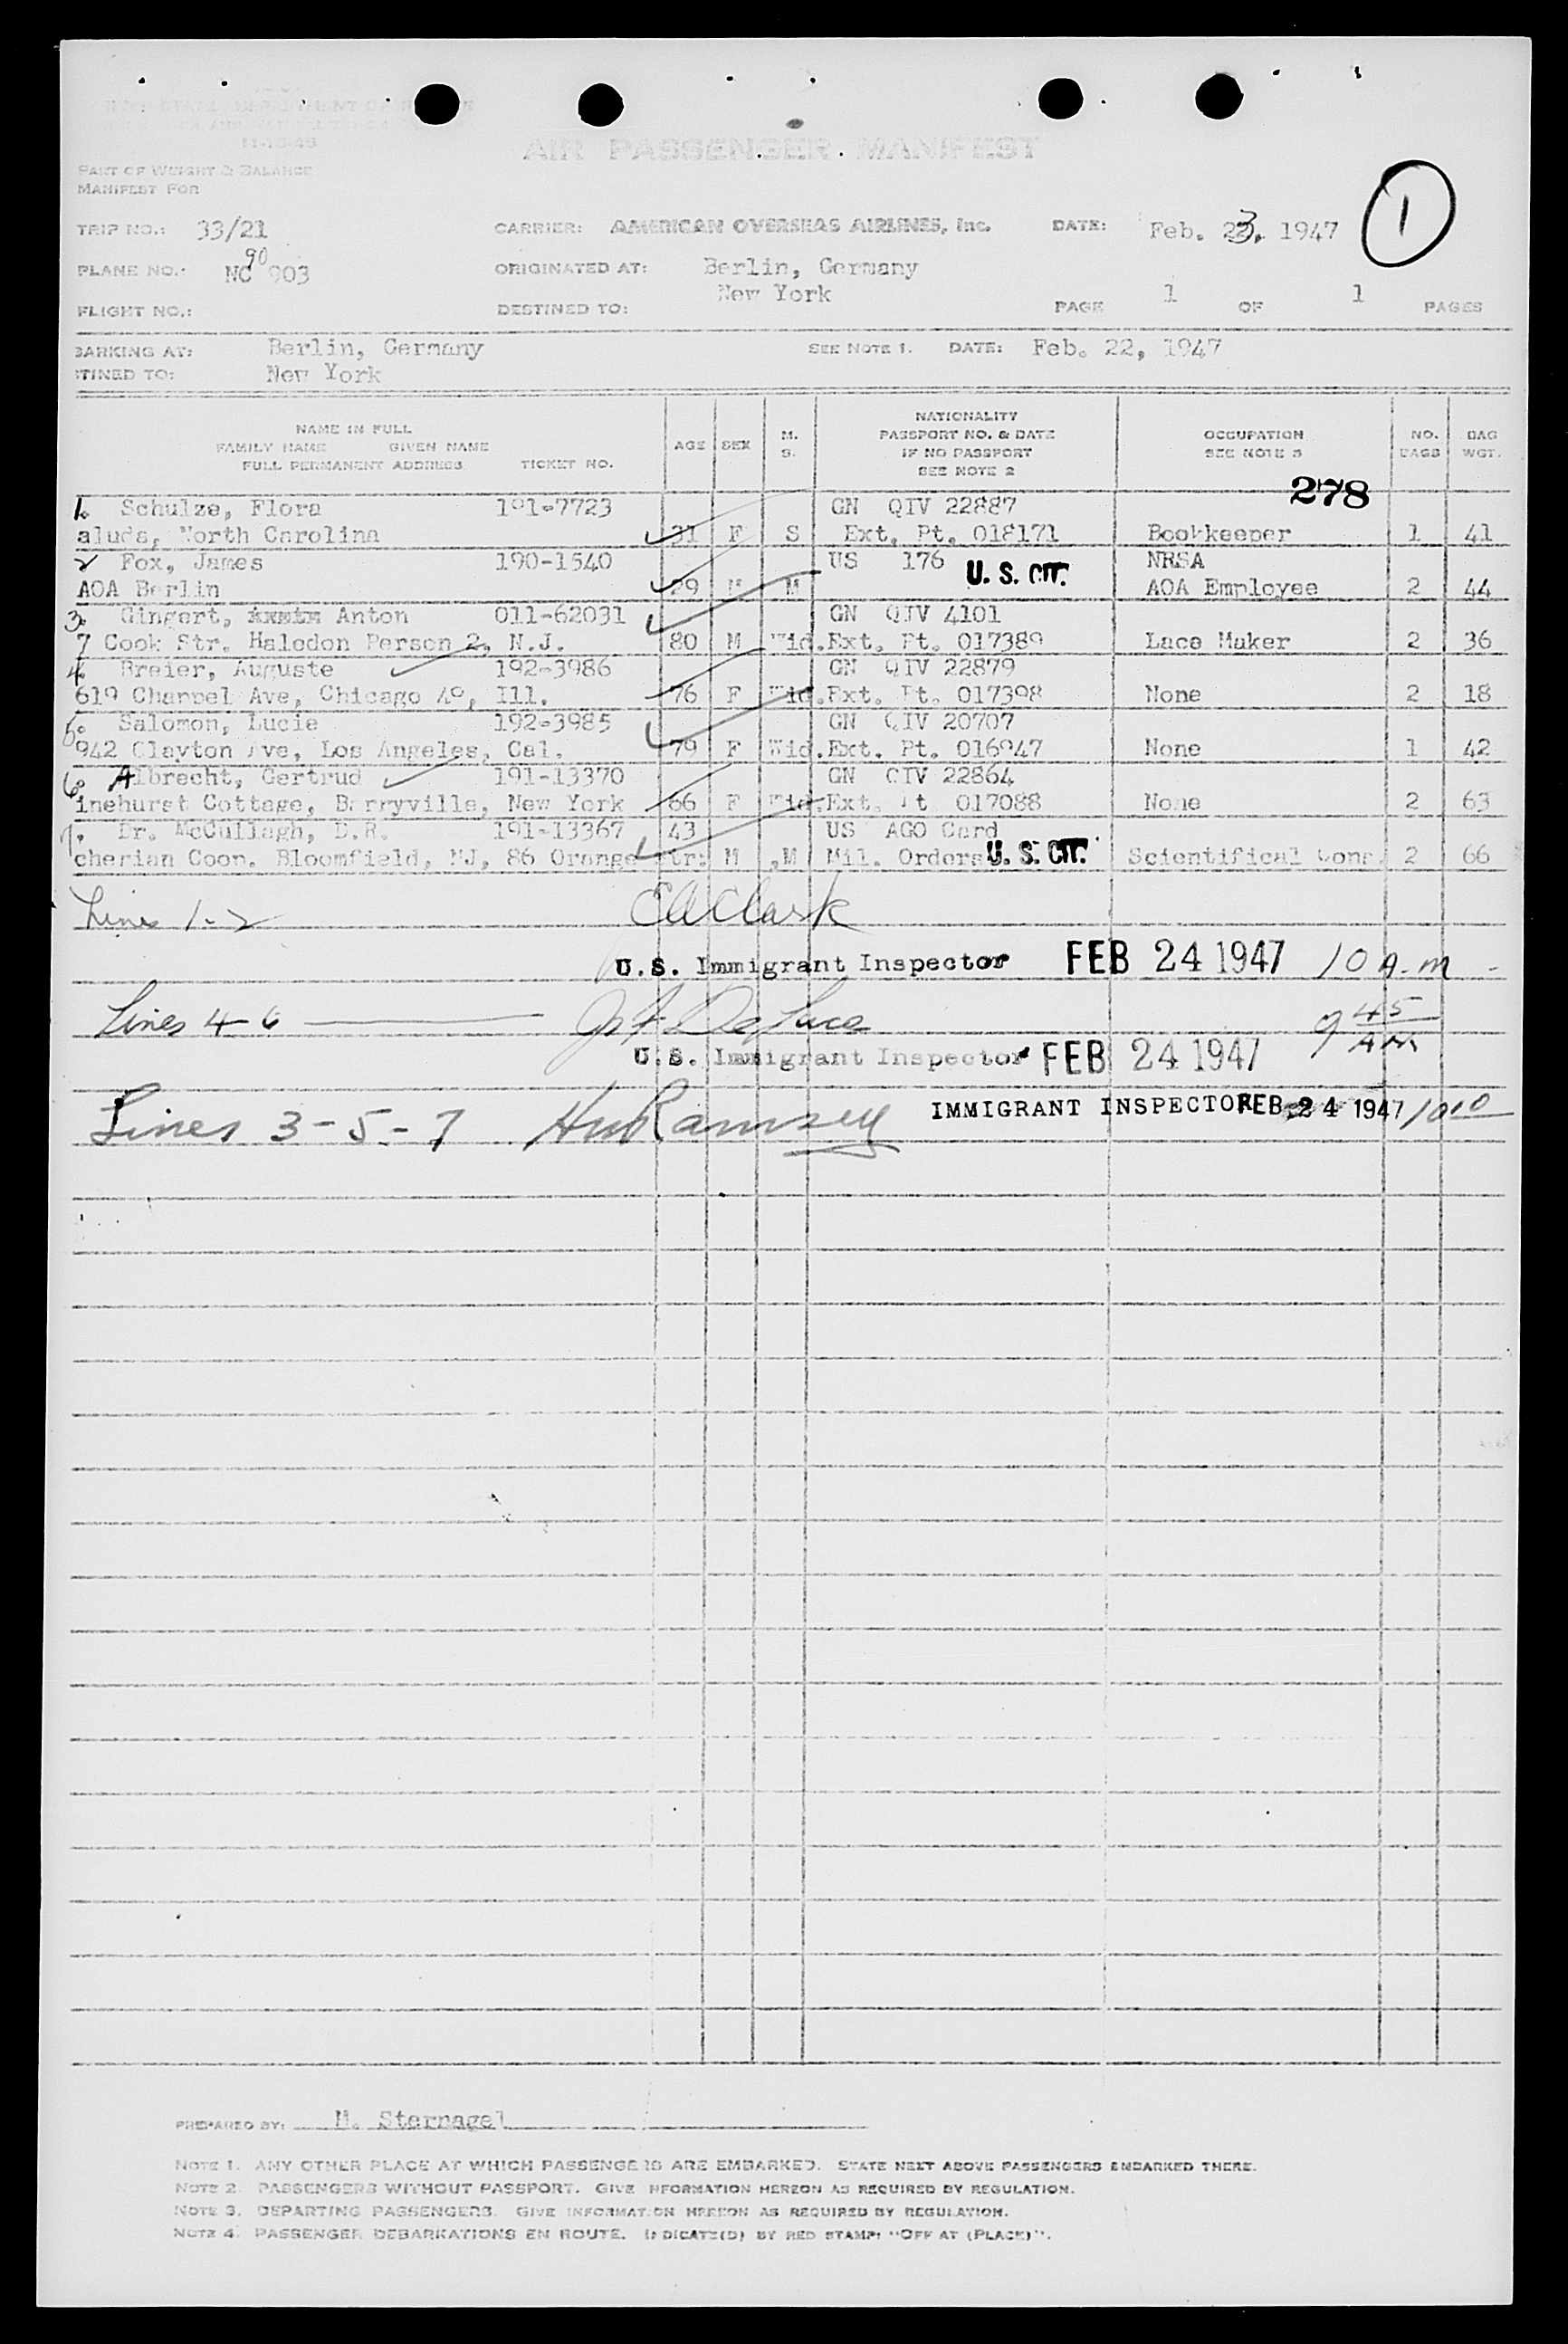 11-15-45
AIR PASSENGER MANIFEST
PART OF WEIGHT & BALANCE
MANIFEST FOR
1
TRIP NO.: 33/21 CARRIER: AMERICAN OVERSEAS AIRLINES, Inc. DATE: Feb. 23, 1947
PLANE NO.: NC 90 903 ORIGINATED AT: Berlin, Germany
FLIGHT NO.: DESTINED TO: New York PAGE 1 OF 1 PAGES
BARKING AT: Berlin, Germany SEE NOTE 1. DATE: Feb. 22, 1947
TINED TO: New York
NAME IN FULL
FAMILY NAME GIVEN NAME
FULL PERMANENT ADDRESS TICKET NO. AGE SEX M. S. NATIONALITY PASSPORT NO. & DATE IF NO PASSPORT SEE NOTE 2 OCCUPATION SEE NOTE 3 NO. BAGS BAG WGT.
278
1. Schulze, Flora 191-7723 GN QIV 22887
aluda, North Carolina 31 F S Ext. Pt. 018171 Bookkeeper 1 41
2 Fox, James 190-1540 US 176 U.S. CIT. NRSA
AOA Berlin 29 M M AOA Employee 2 44
3. Gingert, Anton 011-62031 GN QIV 4101
7 Cook Str. Haledon Person 2, N.J. 80 M Wid. Ext. Pt. 017389 Lace Maker 2 36
4. Breier, Auguste 192-3986 GN QIV 22879
619 Chappel Ave, Chicago 49, Ill. 76 F Wid. Ext. Pt. 017398 None 2 18
5. Salomon, Lucie 192-3985 GN QIV 20707
942 Clayton Ave, Los Angeles, Cal. 79 F Wid. Ext. Pt. 016947 None 1 42
6. Albrecht, Gertrud 191-13370 GN QIV 22864
inehurst Cottage, Barryville, New York 66 F Wid. Ext. Pt 017088 None 2 63
7. Dr. McCullagh, D.R. 191-13367 43 US AGO Card
cherian Coop. Bloomfield, NJ, 86 Orange Str. M M Mil. Orders U.S. CIT. Scientifical Cons. 2 66
Lines 1-2 EA Clark
U.S. Immigrant Inspector FEB 24 1947 10 A.m -
Lines 4-6 DeLuca 9 45 AM
U.S. Immigrant Inspector FEB 24 1947
Lines 3-5-7 Ramsey IMMIGRANT INSPECTOR FEB 24 1947 10 10
PREPARED BY: M. Sternagel
NOTE 1. ANY OTHER PLACE AT WHICH PASSENGERS ARE EMBARKED. STATE NEXT ABOVE PASSENGERS EMBARKED THERE.
NOTE 2. PASSENGERS WITHOUT PASSPORT. GIVE INFORMATION HEREON AS REQUIRED BY REGULATION.
NOTE 3. DEPARTING PASSENGERS. GIVE INFORMATION HEREON AS REQUIRED BY REGULATION.
NOTE 4. PASSENGER DEBARKATIONS EN ROUTE. INDICATE(D) BY RED STAMP: "OFF AT (PLACE)".